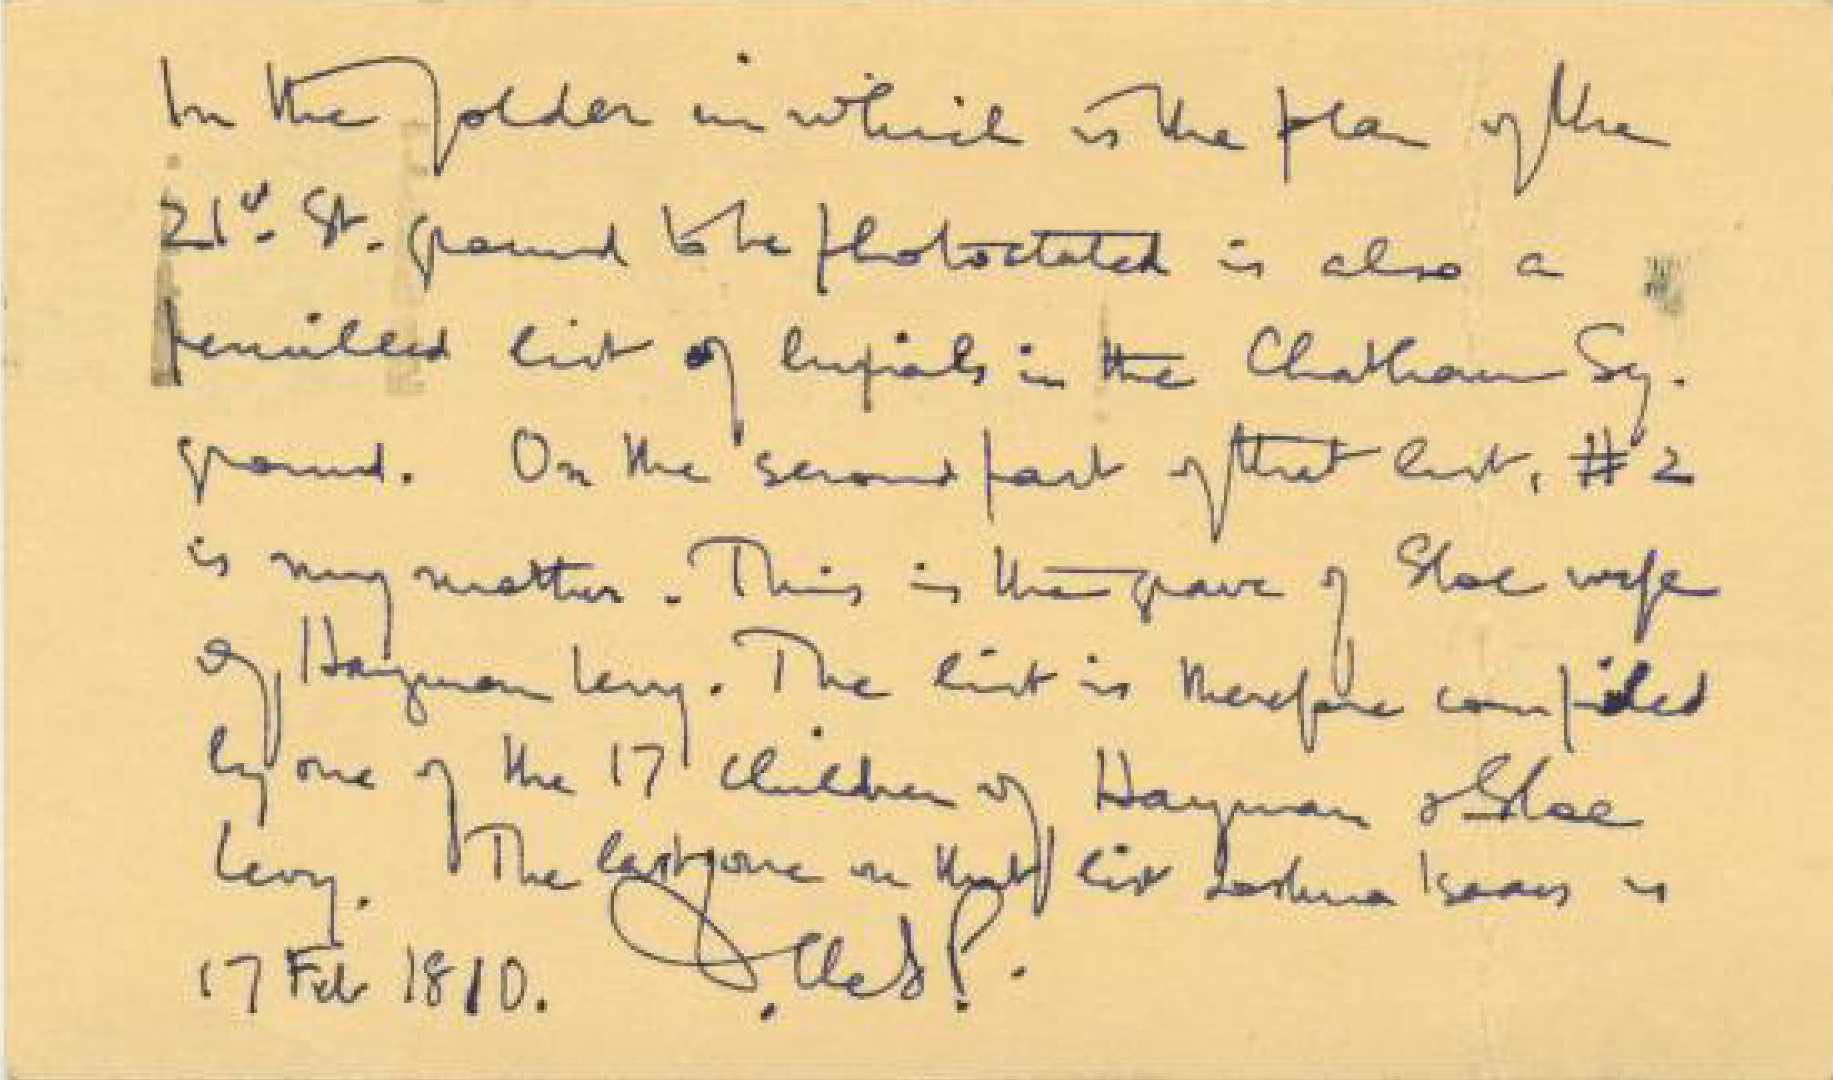 In the folder in which is the plan of the
21st. St. ground to be photostated is also a
pencilled list of burials in the Chatham Sq.
ground. On the second part of that list, #2
is my mother. This is the grave of Sloe wife
of Hayman Levy. The list is therefore compiled
by one of the 17 children of Hayman & Sloe
Levy. The last one on that list Joshua Isaacs is
17 Feb 1810. D. de S P.